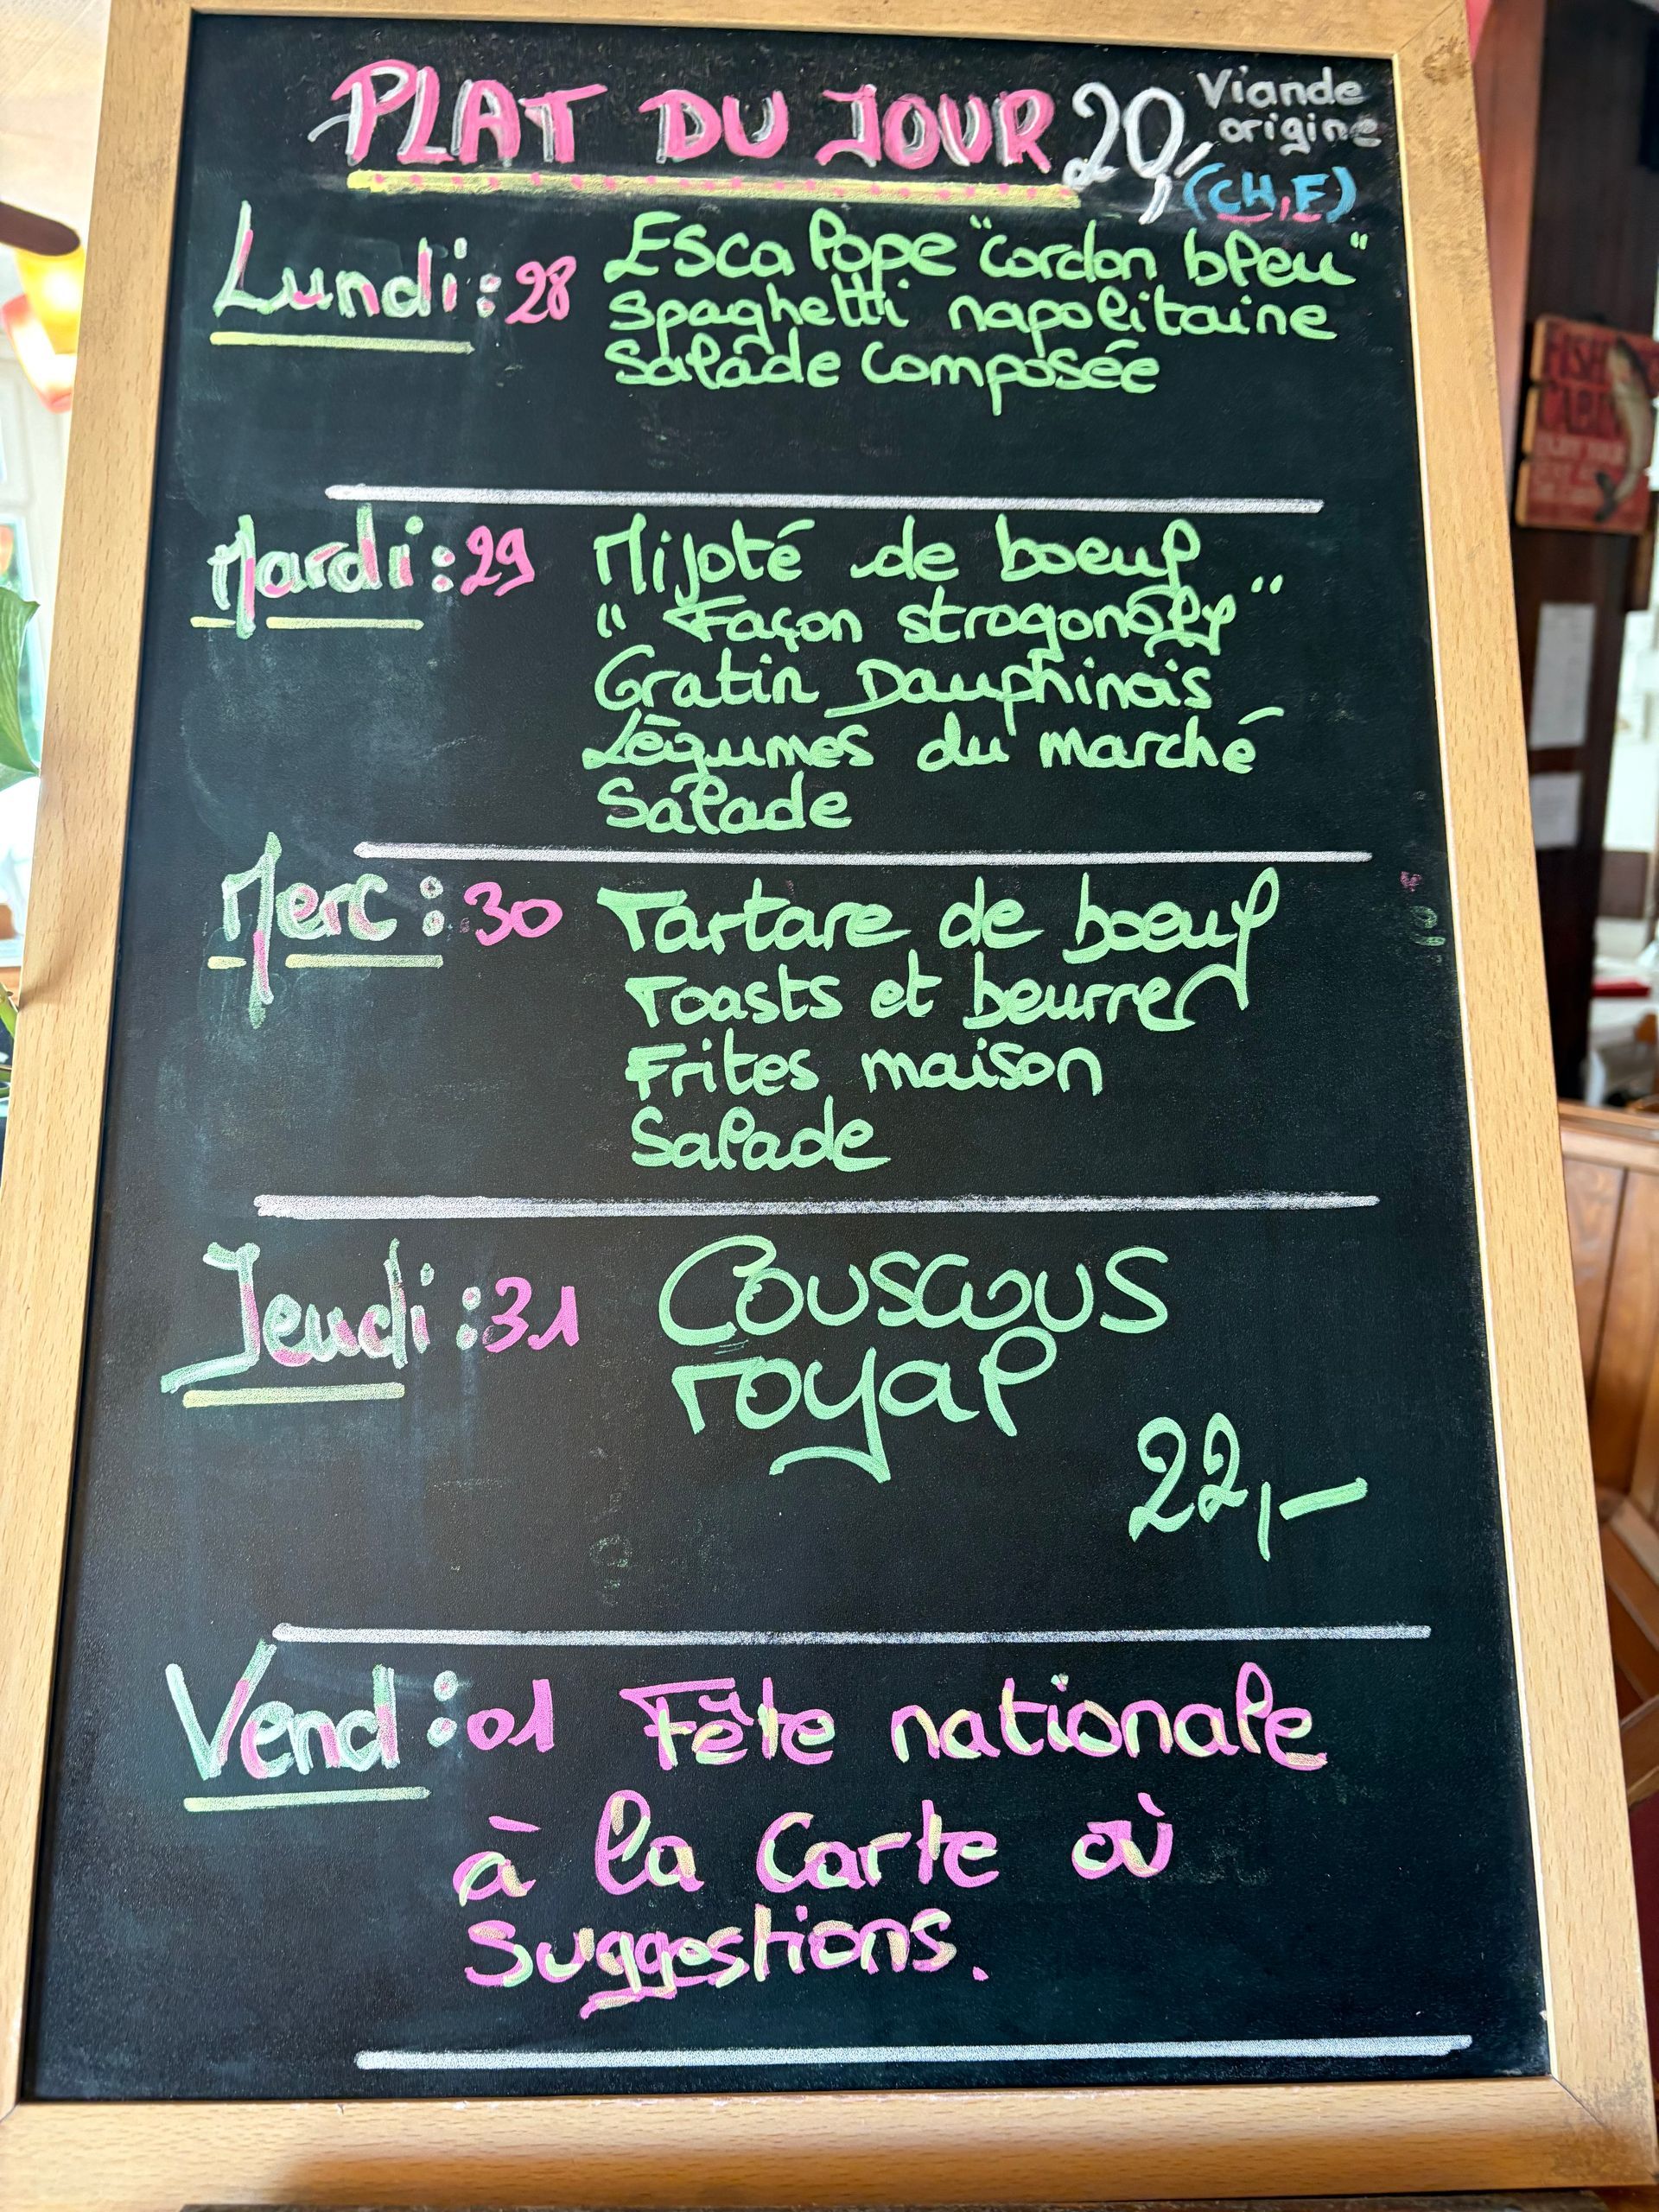 PLAT DU JOUR 20,-
Viande
origine
(CH,F)
Lundi : 28 Escalope "cordon bleu"
Spaghetti napolitaine
Salade composée
Mardi : 29 Mijoté de boeuf
" Façon strogonoff "
Gratin Dauphinois
Légumes du marché
Salade
Merc : 30 Tartare de boeuf
Toasts et beurre
Frites maison
Salade
Jeudi : 31 Couscous
royal
22,-
Vend : 01 Fête nationale
à la Carte où
Suggestions.